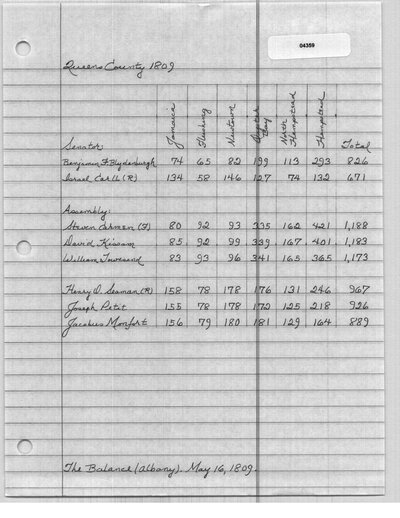 04359
Queens County 1809
Jamaica Flushing Newtown Oyster Bay North Hempstead Hempstead
Senator: Total
Benjamin F Blydenburgh 74 65 82 199 113 293 826
Israel Carll (R) 134 58 146 127 74 132 671
Assembly:
Steven Carmen (F) 80 92 93 335 162 421 1,188
David Kissam 85 92 99 339 167 401 1,183
William Townsend 83 93 96 341 165 365 1,173
Henry O. Seaman (R) 158 78 178 176 131 246 967
Joseph Petit 155 78 178 172 125 218 926
Jacobus Monfort 156 79 180 181 129 164 889
The Balance (Albany). May 16, 1809.